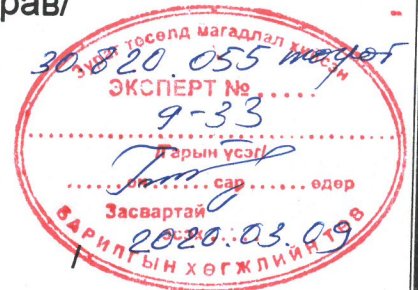 рав/
Зураг төсөлд магадлал хийсэн
30.820.055 төгрөг
ЭКСПЕРТ №.....
9-33
/Гарын үсэг/
.......он.......сар.......өдөр
Засвартай
эсэх
2020.03.09
БАРИЛГЫН ХӨГЖЛИЙН ТӨВ